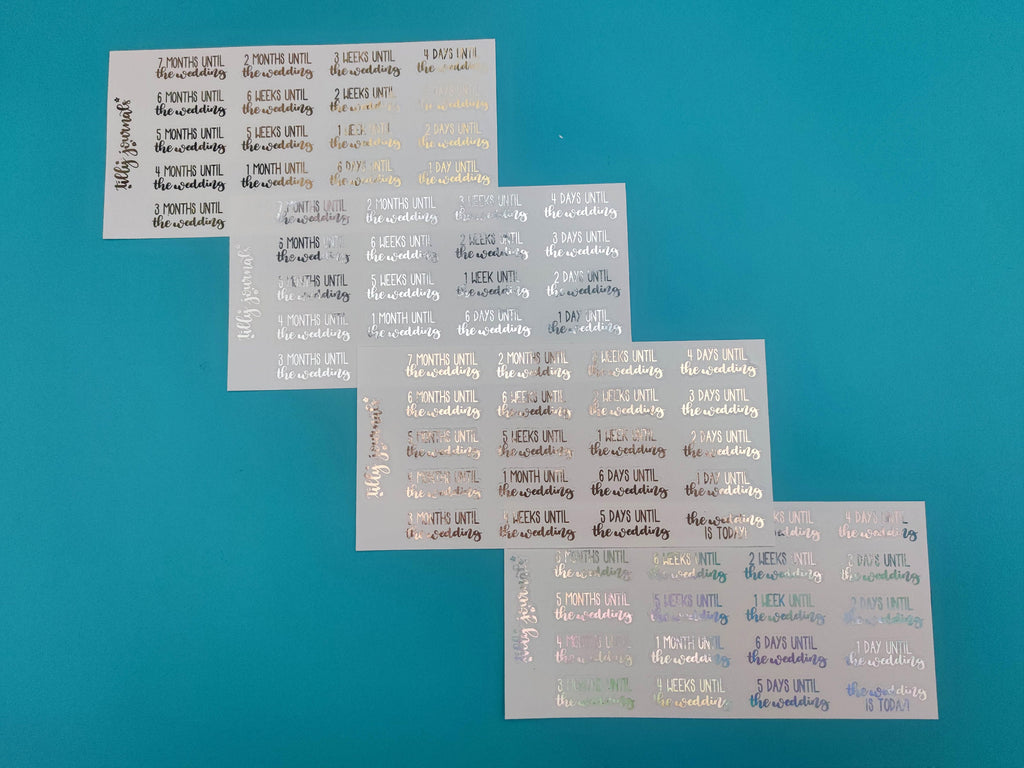 tilly journals
7 MONTHS UNTIL 2 MONTHS UNTIL 3 WEEKS UNTIL 4 DAYS UNTIL
the wedding the wedding the wedding the wedding
6 MONTHS UNTIL 6 WEEKS UNTIL 2 WEEKS UNTIL
the wedding the wedding the wedding
5 MONTHS UNTIL 5 WEEKS UNTIL 1 WEEK UNTIL 2 DAYS UNTIL
the wedding the wedding the wedding the wedding
4 MONTHS UNTIL 1 MONTH UNTIL 6 DAYS UNTIL 1 DAY UNTIL
the wedding the wedding the wedding the wedding
3 MONTHS UNTIL
the wedding
tilly journals
7 MONTHS UNTIL 2 MONTHS UNTIL 3 WEEKS UNTIL 4 DAYS UNTIL
the wedding the wedding the wedding the wedding
6 MONTHS UNTIL 6 WEEKS UNTIL 2 WEEKS UNTIL 3 DAYS UNTIL
the wedding the wedding the wedding the wedding
5 MONTHS UNTIL 5 WEEKS UNTIL 1 WEEK UNTIL 2 DAYS UNTIL
the wedding the wedding the wedding the wedding
4 MONTHS UNTIL 1 MONTH UNTIL 6 DAYS UNTIL 1 DAY UNTIL
the wedding the wedding the wedding the wedding
3 MONTHS UNTIL
the wedding
tilly journals
7 MONTHS UNTIL 2 MONTHS UNTIL WEEKS UNTIL 4 DAYS UNTIL
the wedding the wedding the wedding the wedding
6 MONTHS UNTIL 6 WEEKS UNTIL 2 WEEKS UNTIL 3 DAYS UNTIL
the wedding the wedding the wedding the wedding
5 MONTHS UNTIL 5 WEEKS UNTIL 1 WEEK UNTIL 2 DAYS UNTIL
the wedding the wedding the wedding the wedding
4 MONTHS UNTIL 1 MONTH UNTIL 6 DAYS UNTIL 1 DAY UNTIL
the wedding the wedding the wedding the wedding
3 MONTHS UNTIL WEEKS UNTIL 5 DAYS UNTIL the wedding
the wedding the wedding the wedding IS TODAY!
tilly journals
UNTIL 4 DAYS UNTIL
wedding the wedding
6 MONTHS UNTIL 6 WEEKS UNTIL 2 WEEKS UNTIL 3 DAYS UNTIL
the wedding the wedding the wedding the wedding
5 MONTHS UNTIL 5 WEEKS UNTIL 1 WEEK UNTIL 2 DAYS UNTIL
the wedding the wedding the wedding the wedding
4 MONTHS UNTIL 1 MONTH UNTIL 6 DAYS UNTIL 1 DAY UNTIL
the wedding the wedding the wedding the wedding
3 MONTHS UNTIL 4 WEEKS UNTIL 5 DAYS UNTIL the wedding
the wedding the wedding the wedding IS TODAY!